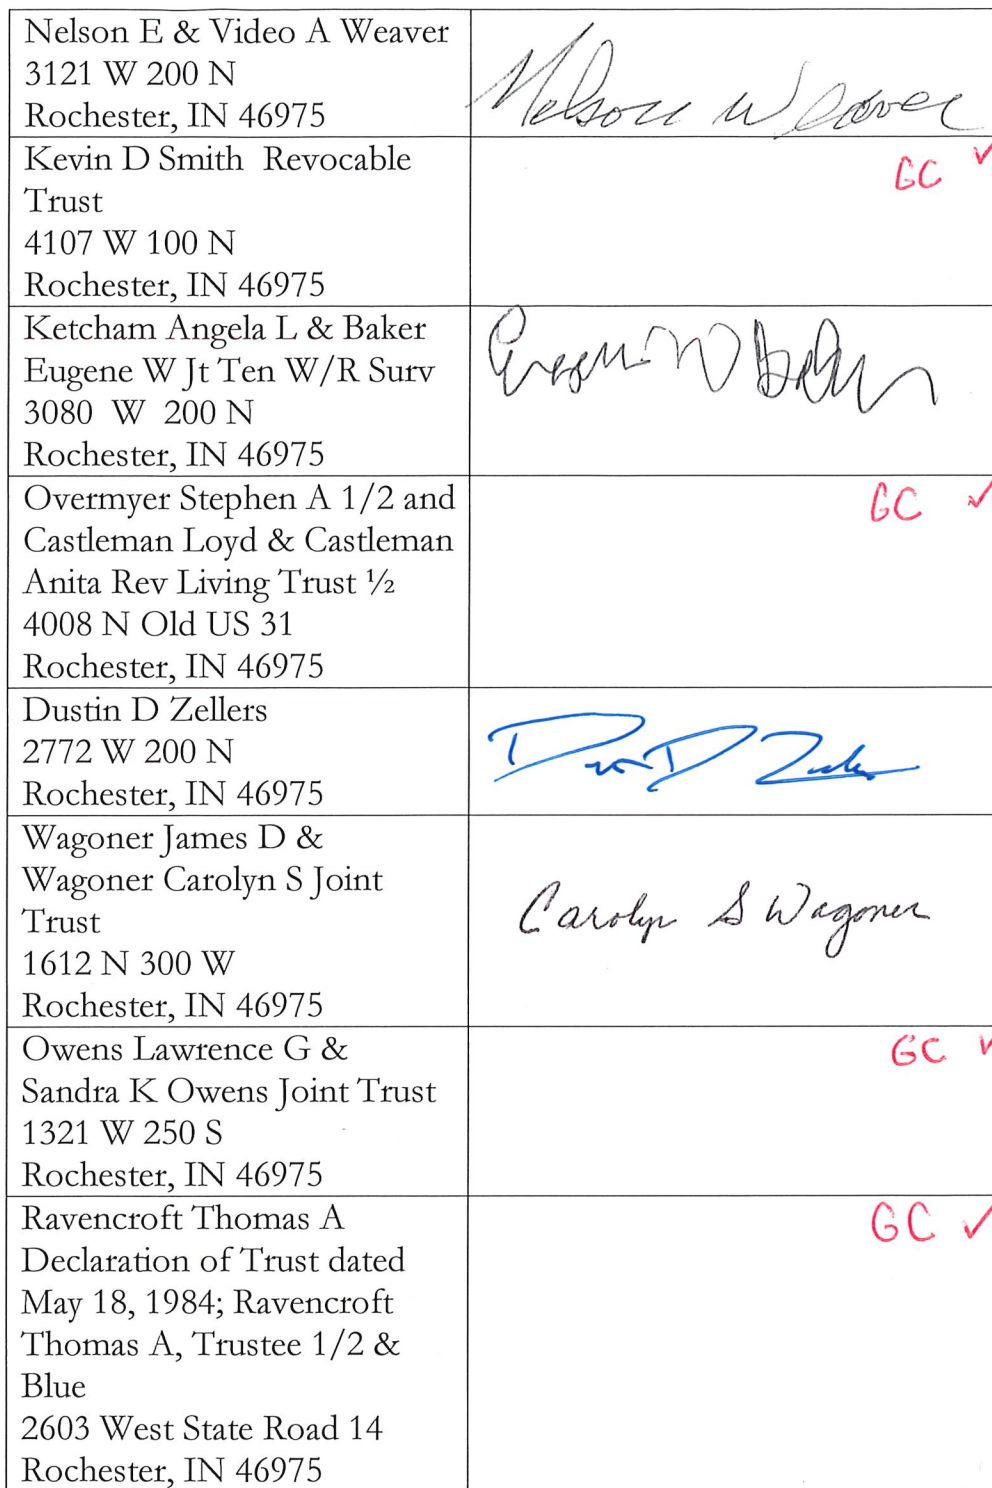 Nelson E & Video A Weaver
3121 W 200 N
Rochester, IN 46975
Nelson Weaver
Kevin D Smith  Revocable
Trust
4107 W 100 N
Rochester, IN 46975
GC ✓
Ketcham Angela L & Baker
Eugene W Jt Ten W/R Surv
3080  W  200 N
Rochester, IN 46975
Eugene W Baker
Overmyer Stephen A 1/2 and
Castleman Loyd & Castleman
Anita Rev Living Trust ½
4008 N Old US 31
Rochester, IN 46975
GC ✓
Dustin D Zellers
2772 W 200 N
Rochester, IN 46975
Wagoner James D &
Wagoner Carolyn S Joint
Trust
1612 N 300 W
Rochester, IN 46975
Carolyn S Wagoner
Owens Lawrence G &
Sandra K Owens Joint Trust
1321 W 250 S
Rochester, IN 46975
GC ✓
Ravencroft Thomas A
Declaration of Trust dated
May 18, 1984; Ravencroft
Thomas A, Trustee 1/2 &
Blue
2603 West State Road 14
Rochester, IN 46975
GC ✓